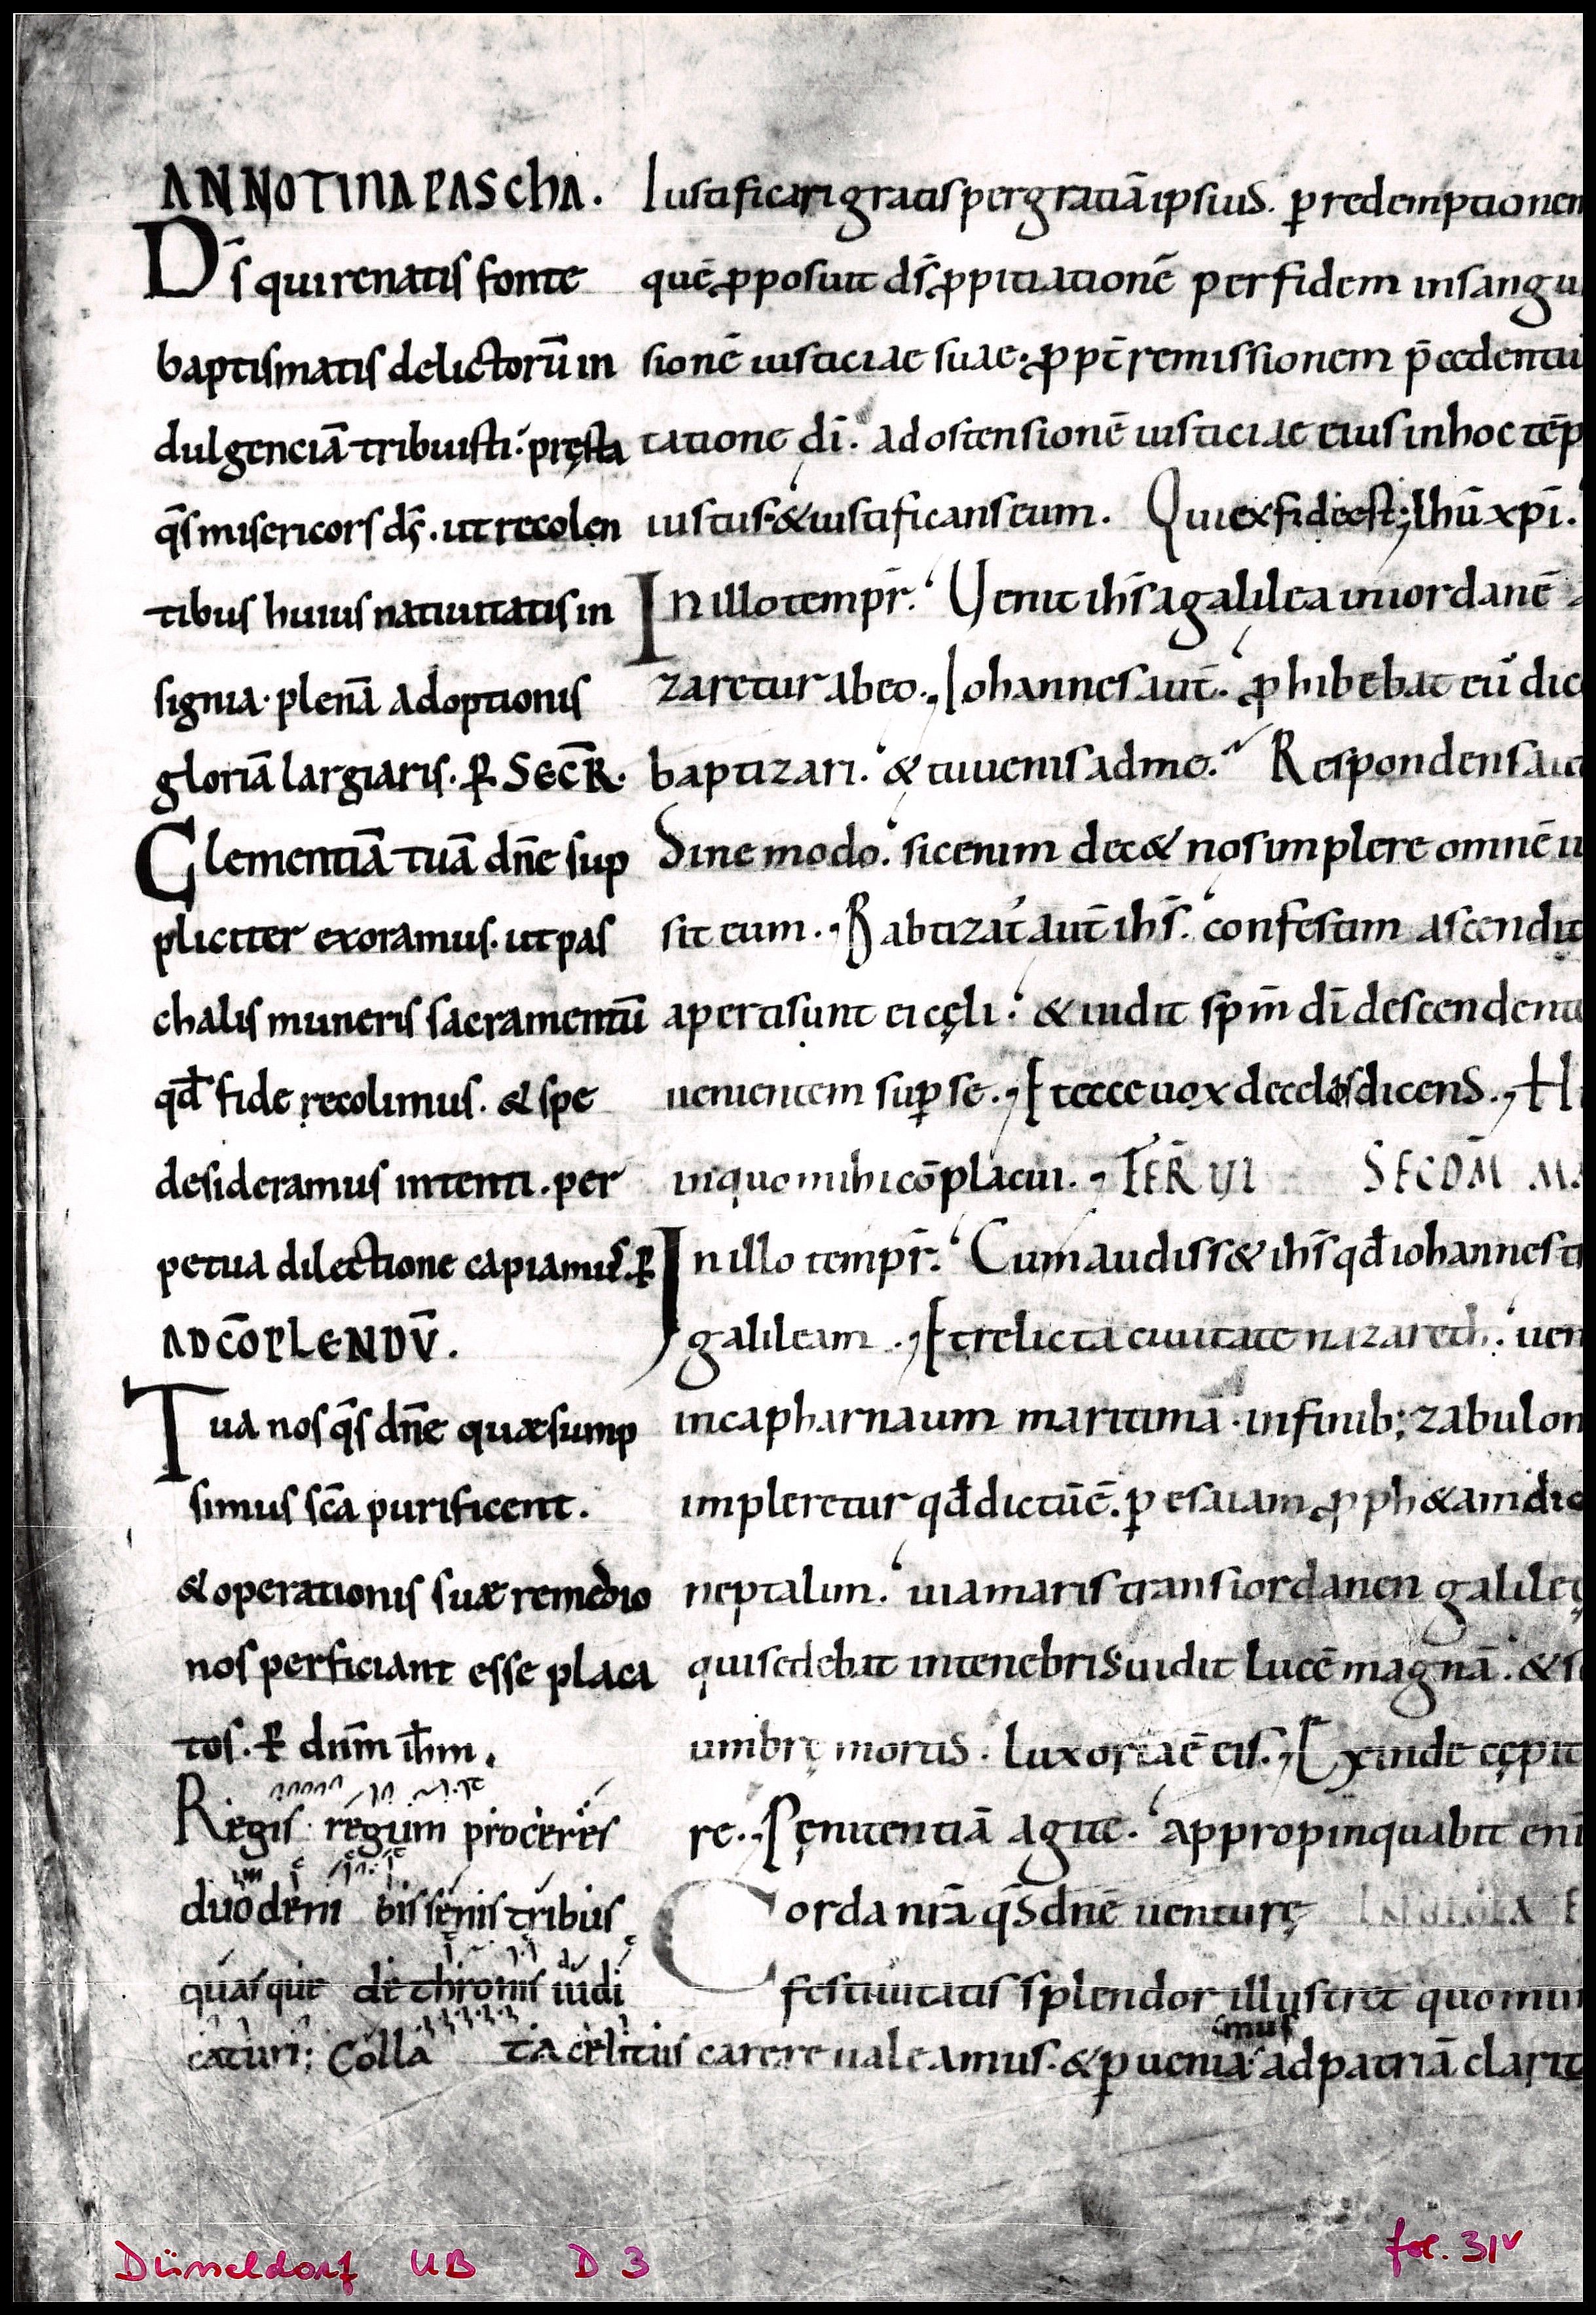 ANNOTINA PASChA.
Ds̄ qui renatis fonte
baptismatis delictorū in
dulgenciā tribuisti. pręsta
qs̄ misericors ds̄. ut recolen
tibus huius natiuitatis in
signia. plenā adoptionis
gloriā largiaris. ꝑ SECR̄.
Clementiā tuā dn̄e sup
pliciter exoramus. ut pas
chalis muneris sacramentū
qd̄ fide recolimus. & spe
desideramus intenti. per
petua dilectione capiamus. ꝑ
AD CŌPLENDV̄.
Tua nos qs̄ dn̄e quæ sump
simus sc̄a purificent.
& operationis suæ remedio
nos perficiant esse placa
tos. ꝑ dnm̄ ih̄m.
Regis regum proceres
duodeni bis senis tribus
quasque de thronis iudi
caturi; Colla
Iustificari gratis per gratiā ipsius. ꝑ redemptionem
quē ꝓposuit ds̄ ꝓpitiationē per fidem in sangu
sionē iusticiae suae. ꝓpt̄ remissionem p̄cedentiū
tatione dī. ad ostensionē iusticiae eius in hoc tēp
iustus & iustificans eum. Qui ex fide est ihū xpī.
In illo tempr̄. Uenit ihs̄ a galilea in iordanē
zaretur ab eo. Iohannes aut̄. ꝓhibebat eū dic
baptizari. & tu uenis ad me. Respondens aut
Sine modo. sic enim dec& nos implere omnē iu
sit eum. Babtizat' aut̄ ihs̄. confestim ascendit
aperti sunt ei cęli. & uidit spm̄ dī descendent
uenientem suꝑ se. Et ecce uox de celos dicens. Hi
in quo mihi cōplacui. FER̄ VI SECDM̄ MA
In illo tempr̄. Cum audiss& ihs̄ qd̄ iohannes t
galileam. Et relicta ciuitate nazareth. uen
in capharnaum maritimā. in finib; zabulon
impleretur qd̄ dictū ē. ꝑ esaiam ꝓph&am dic
neptalim. uia maris trans iordanen galileę
qui sedebat in tenebris uidit lucē magnā. & s
umbrę mortis. lux orta ē eis. Exinde cępit
re. Pęnitentiā agite. appropinquabit eni
Corda nr̄a qs̄ dn̄e uenturę
festiuitatis splendor illustret quo mun
ta celitus carere ualeamus. & ꝑueniamus ad patriā clarit
Düsseldorf UB D 3 fol. 31v